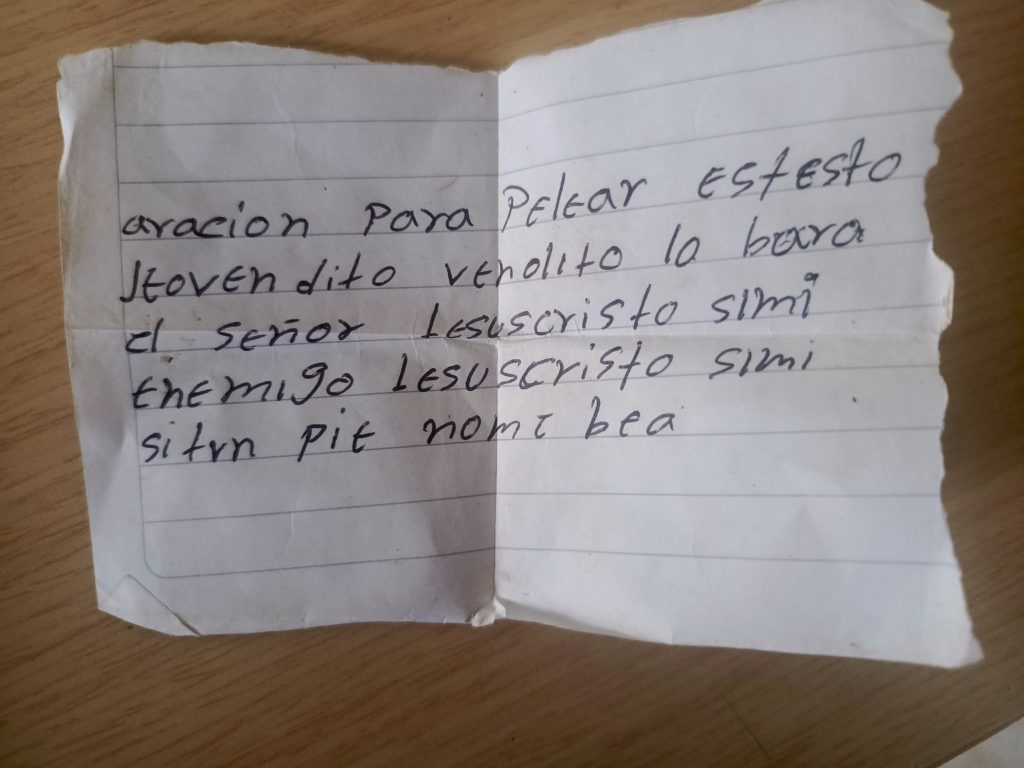 aracion para pelear estesto
Jtovendito vendito la bara
el señor Lesuscristo simi
enemigo Lesuscristo simi
sitrn pie nome bea